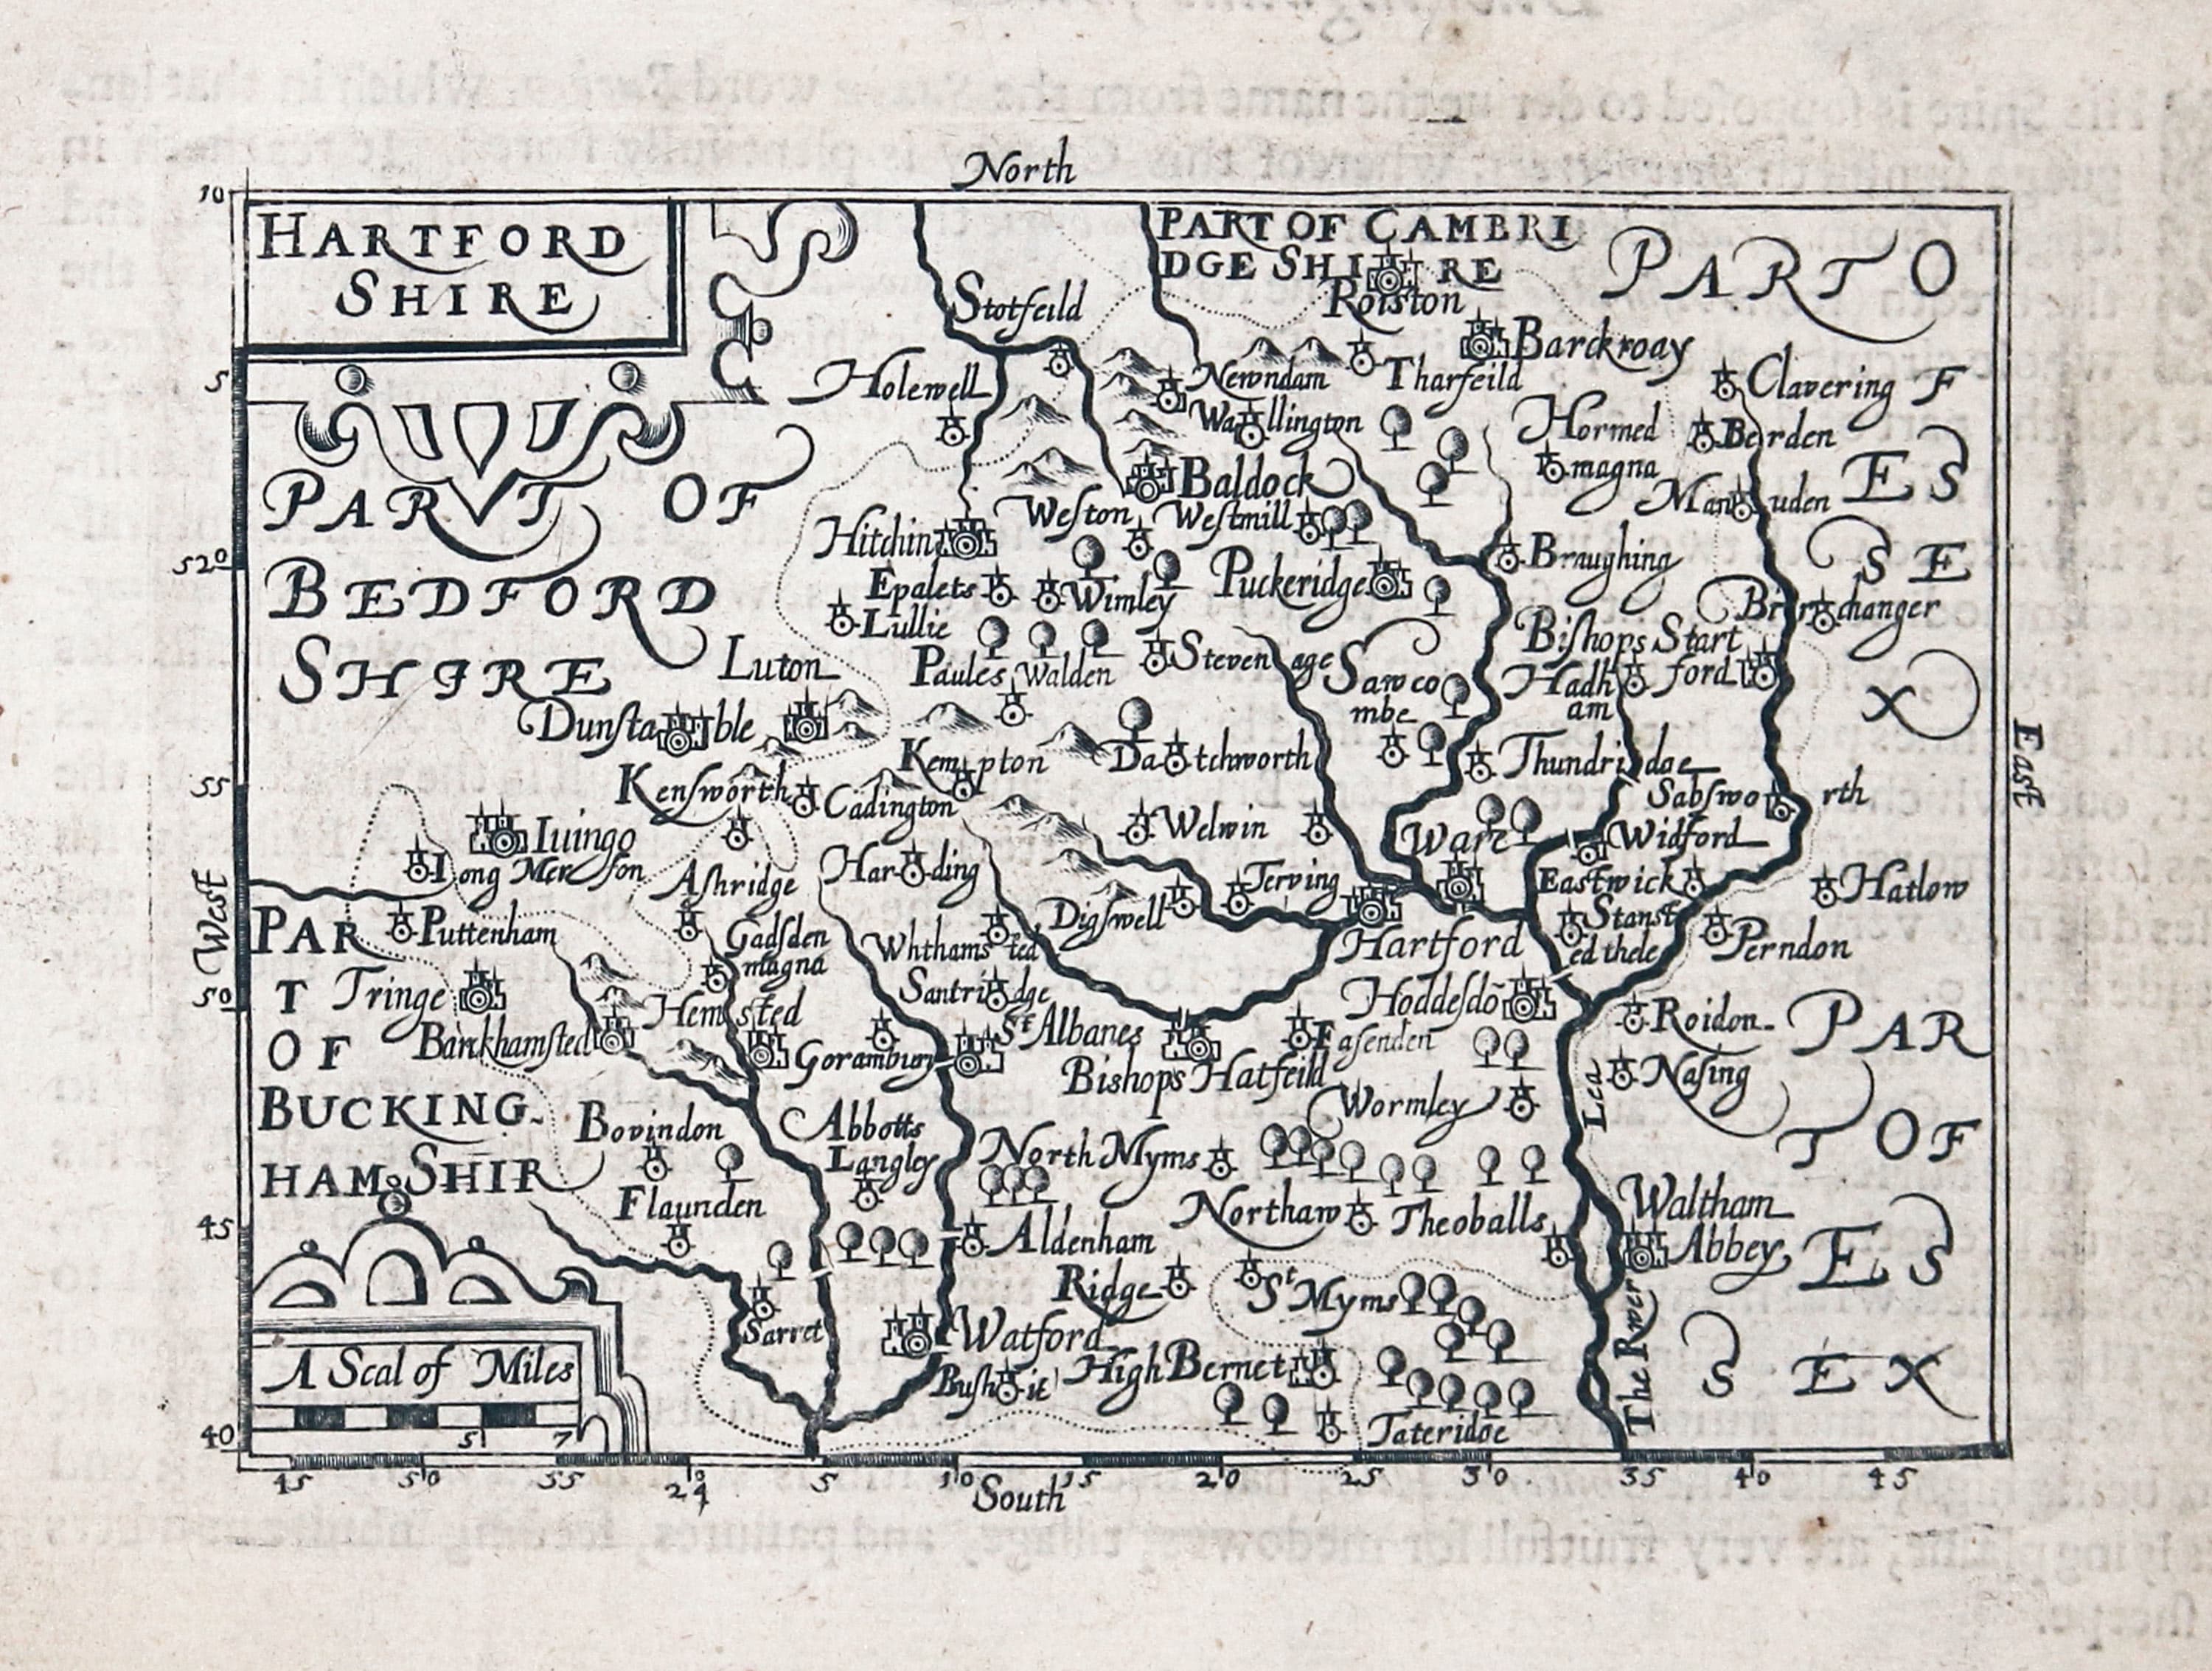 North
HARTFORD
SHIRE
PART OF CAMBRI
DGE SHIRE
PART O
F
ES
SE
X
Roiston
Stotfeild
Barckway
Holewell
Newndam
Tharfeild
Clavering
Wallington
Hormed
magna
Berden
PART OF
BEDFORD
SHIRE
Baldock
Manuden
Hitchin
Weston
Westmill
Braughing
Epalets
Wimley
Puckeridge
Lullie
Birchanger
Bishops Start
ford
Luton
Paules Walden
Stevenage
Sawco
mbe
Hadh
am
Dunstable
Kempton
Datchworth
Thundridge
Kensworth
Cadington
Sabsworth
Iuingo
Welwin
Ware
Widford
Long Merston
Ashridge
Harding
Terving
Eastwick
Hatlow
PAR
T
OF
BUCKING-
HAM SHIR
Puttenham
Gadsden
magna
Whthamsted
Digswell
Hartford
Stanst
ed thele
Perndon
Tringe
Hemsted
Santridge
Hoddesdō
Roidon
PAR
T OF
ES
SEX
Barkhamsted
Gorambury
St Albanes
Bishops Hatfeild
Easenden
Nasing
Wormley
Bovindon
Abbotts
Langley
North Myms
Flaunden
Northaw
Theoballs
Waltham
Abbey
Aldenham
Ridge
St Myms
Sarret
Watford
Bushie
High Bernet
Tateridge
The River Lea
A Scal of Miles
5 7
West
East
10
5
52°
55
50
45
40
45 50 55 24 5 10 15 20 25 30 35 40 45
South